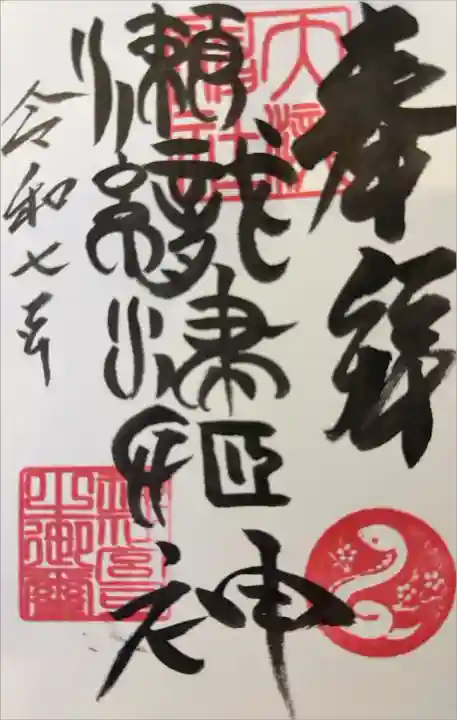 奉拝
瀬織津姫神
令和七年